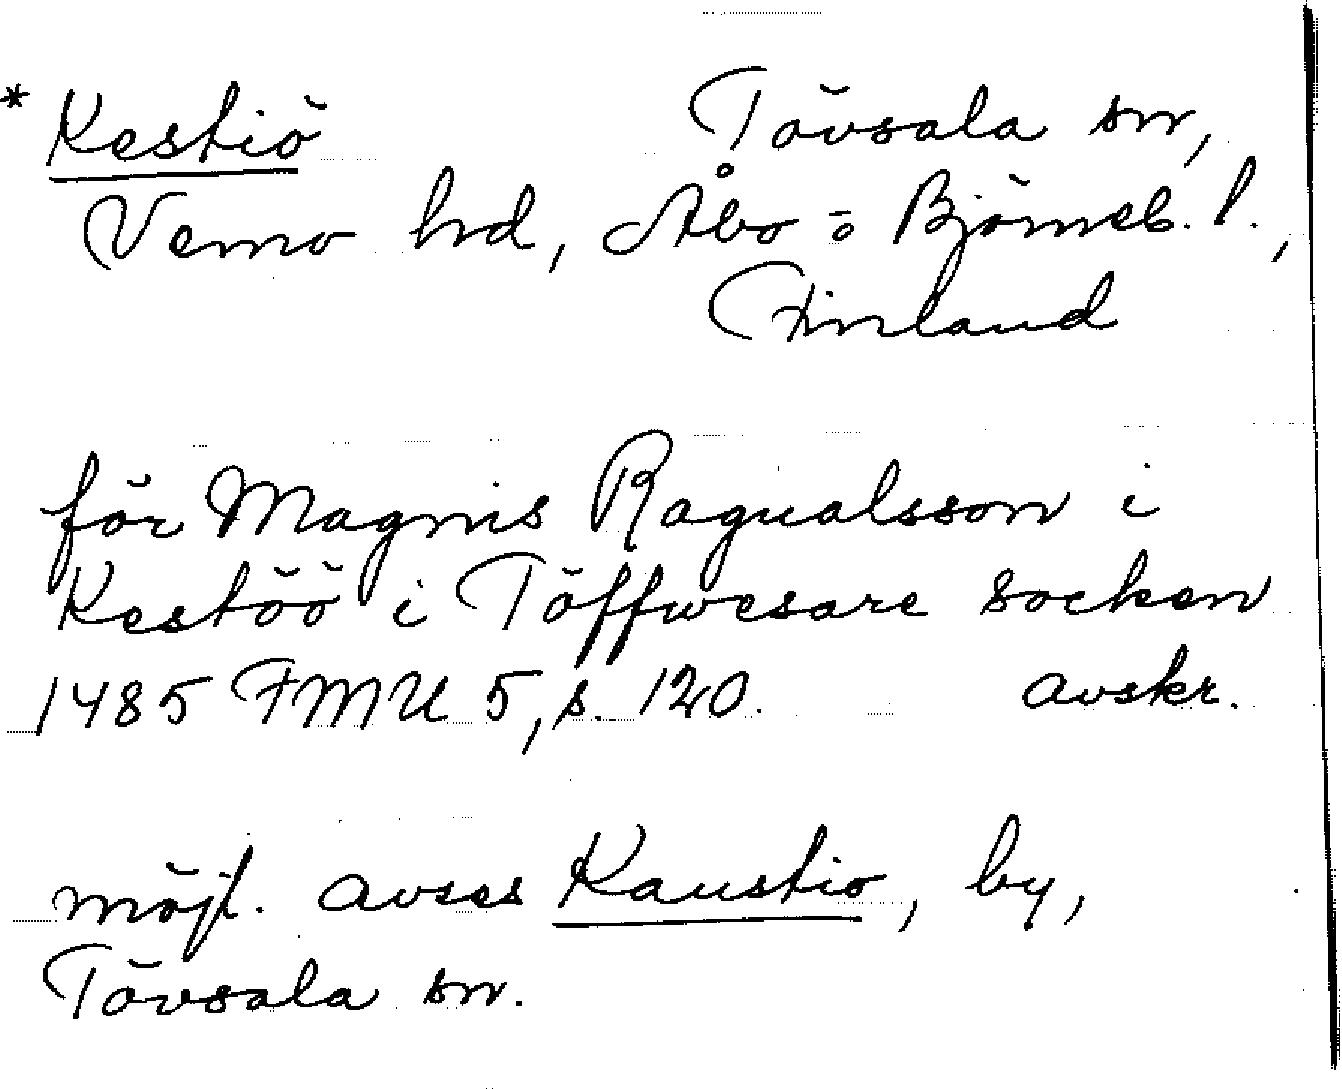 * Kestiö Tövsala sn,
Vemo hd, Åbo o Björneb. l.,
Finland
för Magnis Ragualsson i
Kestöö i Töffwesare socken
1485 FMU 5, s. 120. avskr.
möjl. avses Kaustio, by,
Tövsala sn.